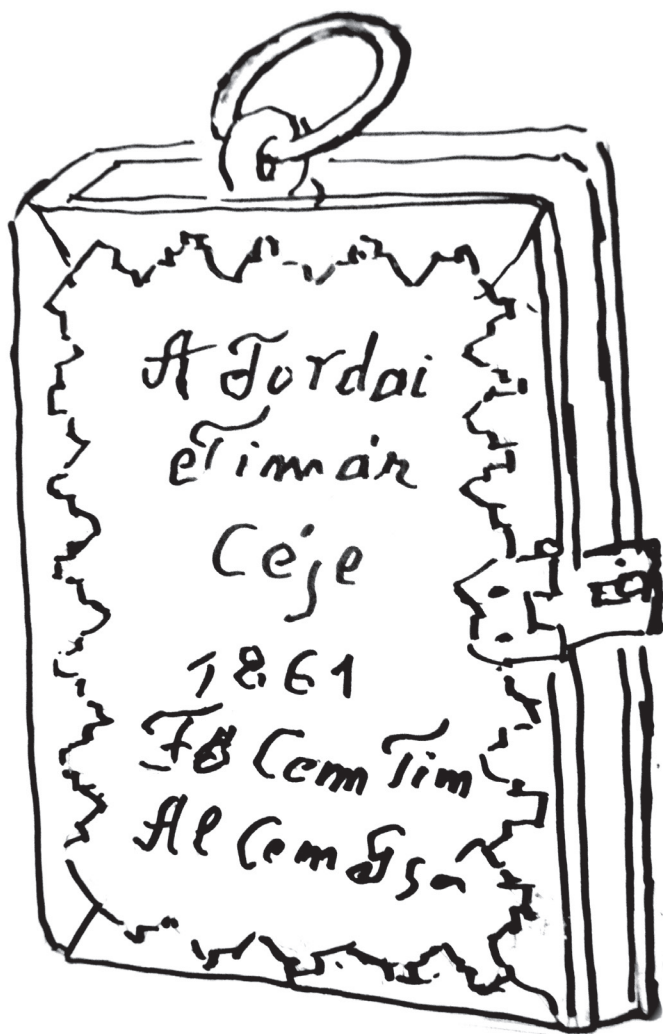 A Tordai
Timár
Céje
1861
Fő Cem Tim
Al Cem